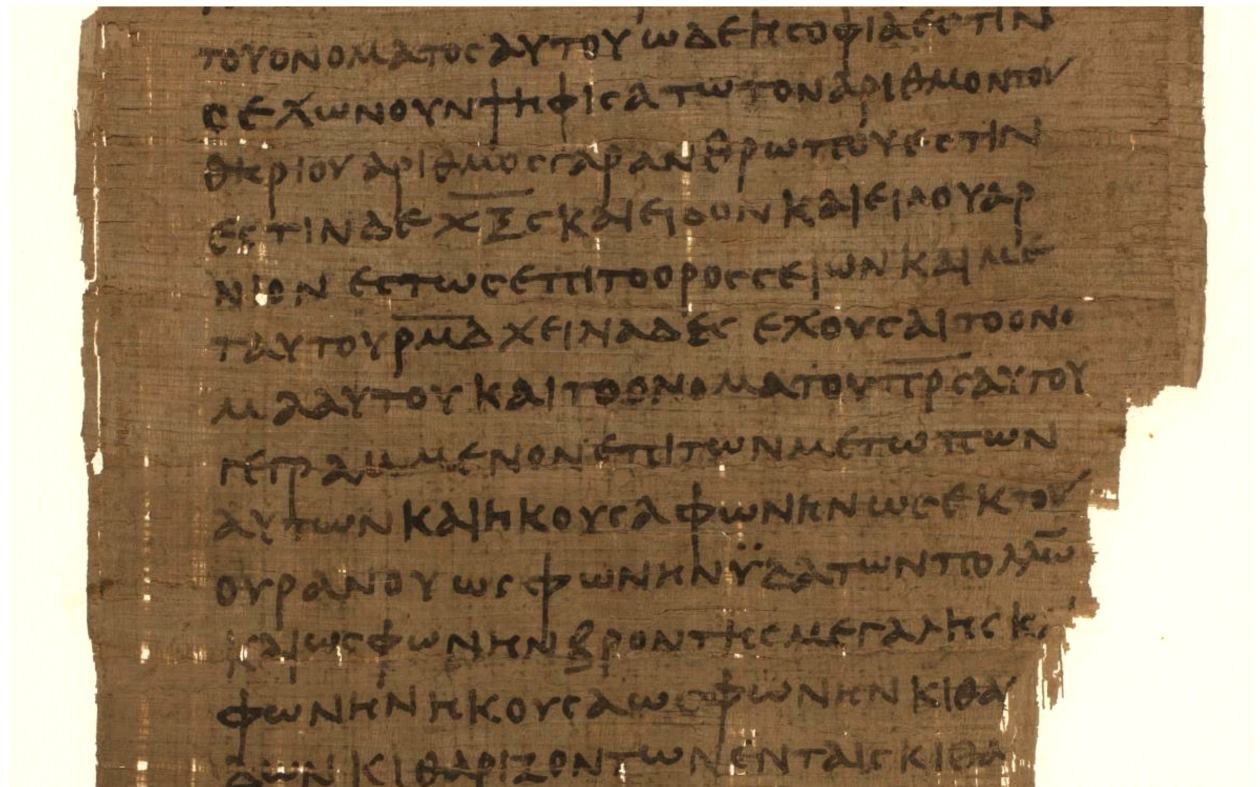 ΤΟΥΟΝΟΜΑΤΟϹΑΥΤΟΥΩΔΕΗϹΟΦΙΑΕϹΤΙΝ
ΟΕΧΩΝΟΥΝΨΗΦΙϹΑΤΩΤΟΝΑΡΙΘΜΟΝΤΟΥ
ΘΗΡΙΟΥΑΡΙΘΜΟϹΓΑΡΑΝΘΡΩΠΟΥΕϹΤΙΝ
ΕϹΤΙΝΔΕΧ̅Ξ̅Ϛ̅ΚΑΙΕΙΔΟΝΚΑΙΕΙΔΟΥΑΡ
ΝΙΟΝ ΕϹΤΩϹΕΠΙΤΟΟΡΟϹϹΕΙΩΝΚΑΙΜΕ
ΤΑΥΤΟΥΡ̅Μ̅Δ̅ΧΕΙΝΑΔΕϹ ΕΧΟΥϹΑΙΤΟΟΝΟ
ΜΑΑΥΤΟΥΚΑΙΤΟΟΝΟΜΑΤΟΥΠ̅Ρ̅Ϲ̅ΑΥΤΟΥ
ΓΕΓΡΑΜΜΕΝΟΝΕΠΙΤΩΝΜΕΤΩΠΩΝ
ΑΥΤΩΝΚΑΙΗΚΟΥϹΑΦΩΝΗΝΩϹΕΚΤΟΥ
ΟΥΡΑΝΟΥΩϹΦΩΝΗΝΫΔΑΤΩΝΠΟΛΛΩ̅
ΚΑΙΩϹΦΩΝΗΝΒΡΟΝΤΗϹΜΕΓΑΛΗϹΚΑ
ΦΩΝΗΝΗΚΟΥϹΑΩϹΦΩΝΗΝΚΙΘΑ
ΔΩΝΚΙΘΑΡΙΖΟΝΤΩΝΕΝΤΑΙϹΚΙΘΑ